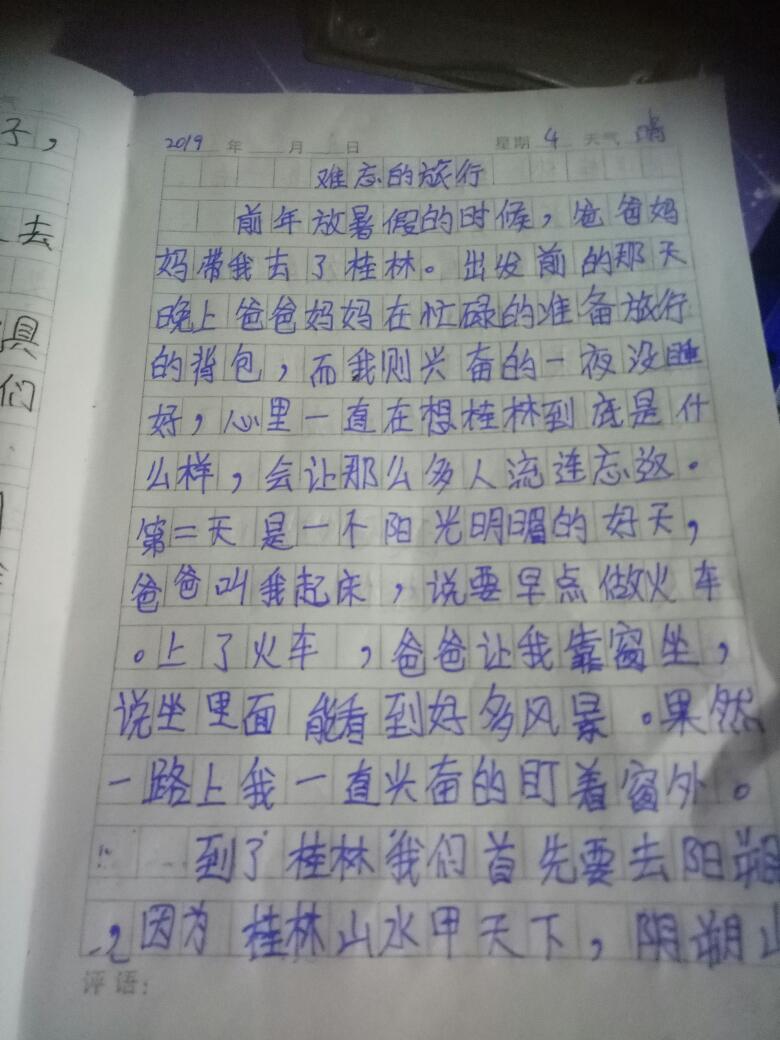 子，
去
具
们
2019 年 月 日 星期 4 天气 晴
难忘的旅行
前年放暑假的时候，爸爸妈
妈带我去了桂林。出发前的那天
晚上爸爸妈妈在忙碌的准备旅行
的背包，而我则兴奋的一夜没睡
好，心里一直在想桂林到底是什
么样，会让那么多人流连忘返。
第二天是一个阳光明媚的好天，
爸爸叫我起床，说要早点做火车
。上了火车，爸爸让我靠窗坐，
说坐里面能看到好多风景。果然
一路上我一直兴奋的盯着窗外。
到了桂林我们首先要去阳朔
，因为桂林山水甲天下，阴朔山
评语：